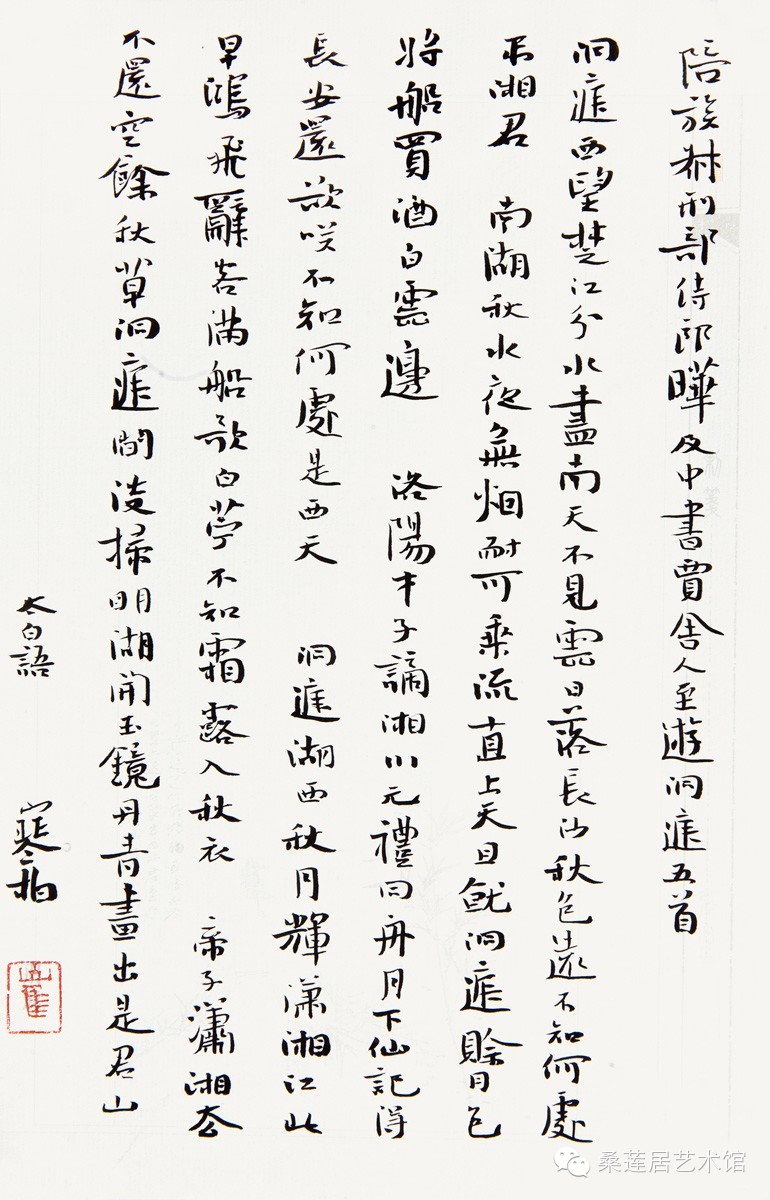 陪族叔刑部侍郎曄及中書賈舍人至遊洞庭五首
洞庭西望楚江分水盡南天不見雲日落長沙秋色遠不知何處
吊湘君 南湖秋水夜無烟耐可乘流直上天且就洞庭賒月色
將船買酒白雲邊 洛陽才子謫湘川元禮同舟月下仙記得
長安還欲咲不知何處是西天 洞庭湖西秋月輝瀟湘江北
早鴻飛辭客滿船歌白苧不知霜露入秋衣 帝子瀟湘去
不還空餘秋草洞庭間淡掃明湖開玉鏡丹青畫出是君山
太白語
桑莲居艺术馆